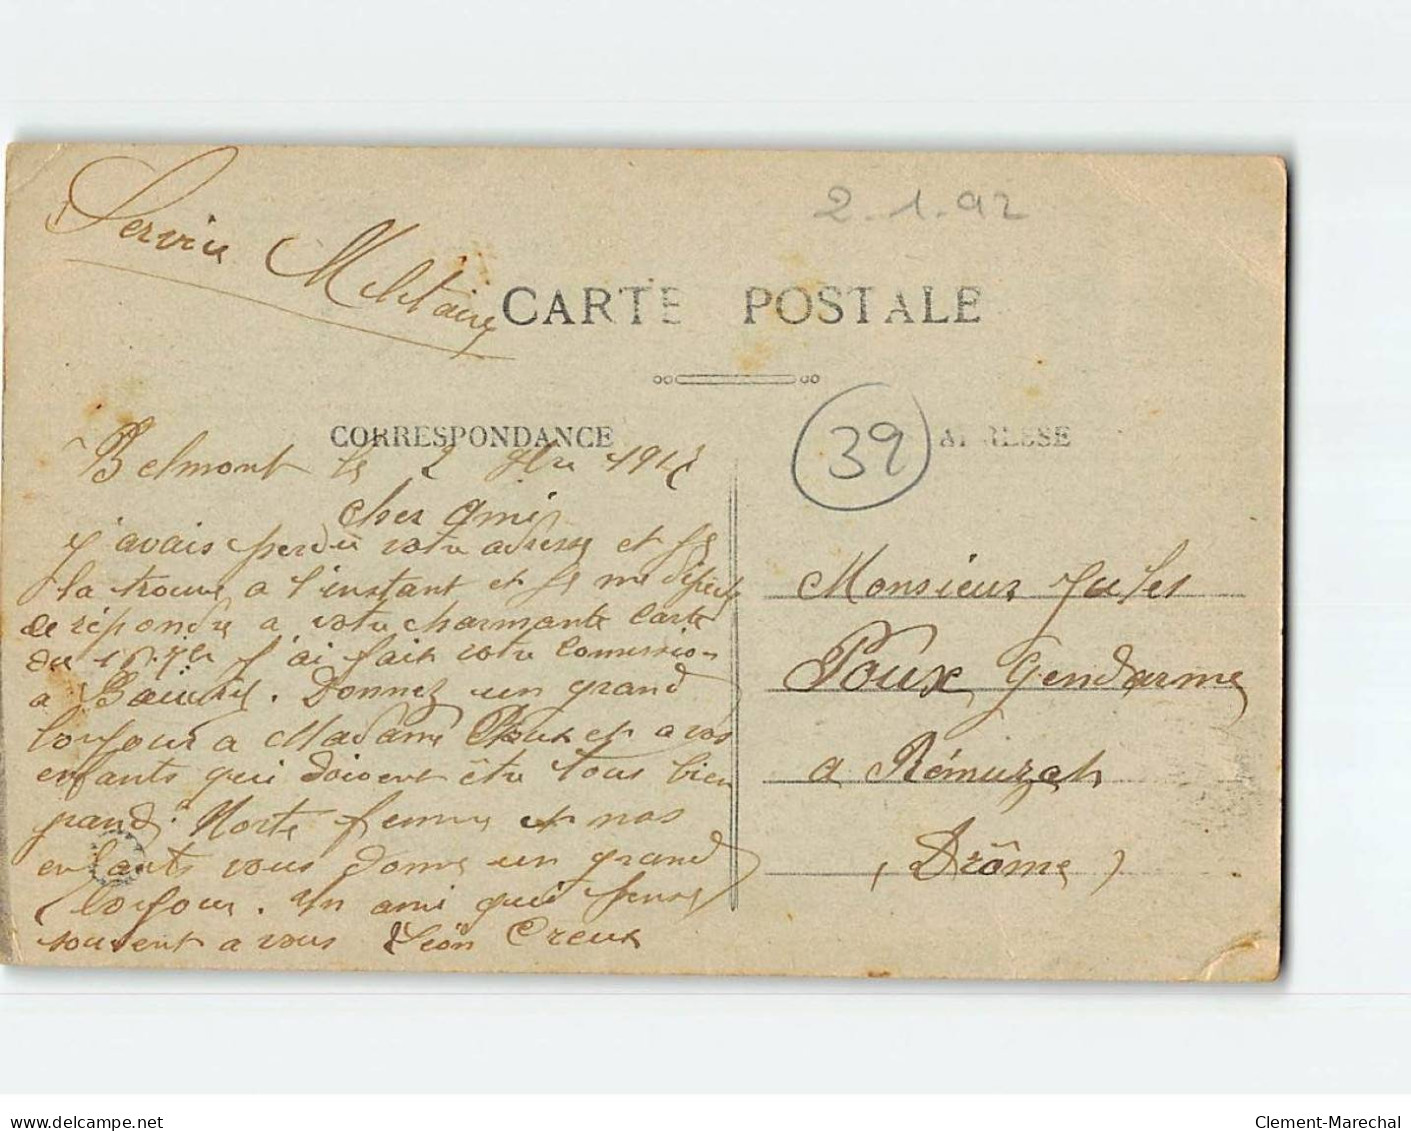 Service Militaire
2.1.92
CARTE POSTALE
CORRESPONDANCE
39
ADRESSE
Belmont le 2 191
cher ami
j'avais perdu votre adresse et je
la trouve a l'instant et je me dépeche
de répondre a votre charmante Carte
du j'ai fait votre Commission
a . Donnez un grand
bonjour a Madame Poux et a vos
enfants qui doivent être tous bien
grand. Notre femme et nos
enfants vous donne un grand
bonjour. Un ami qui pense
souvent a vous Léon Creux
Monsieur Jules
Poux Gendarme
a Rémuzat
(Drôme)
delcampe.net
Clement-Marechal